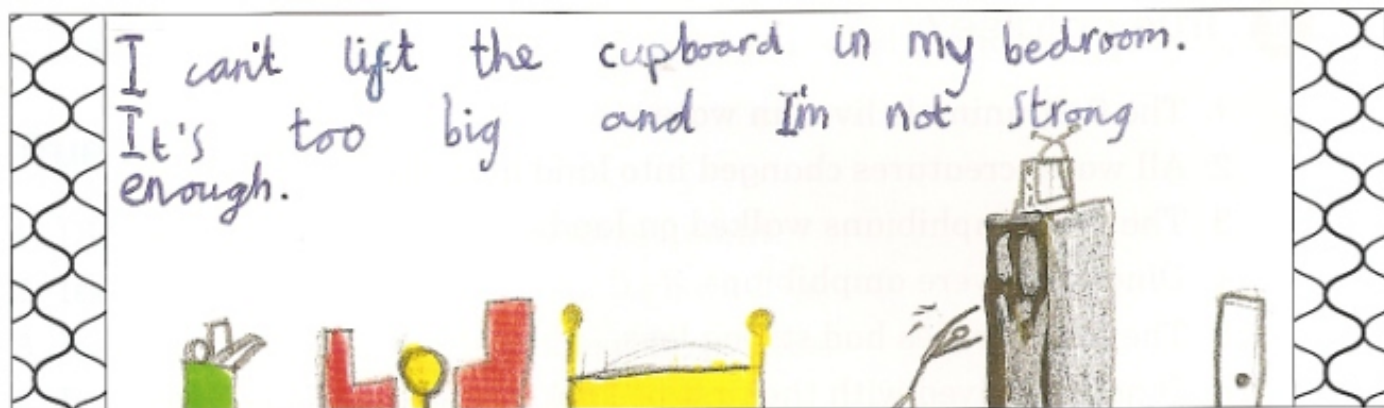 I can't lift the cupboard in my bedroom.
It's too big and I'm not strong
enough.